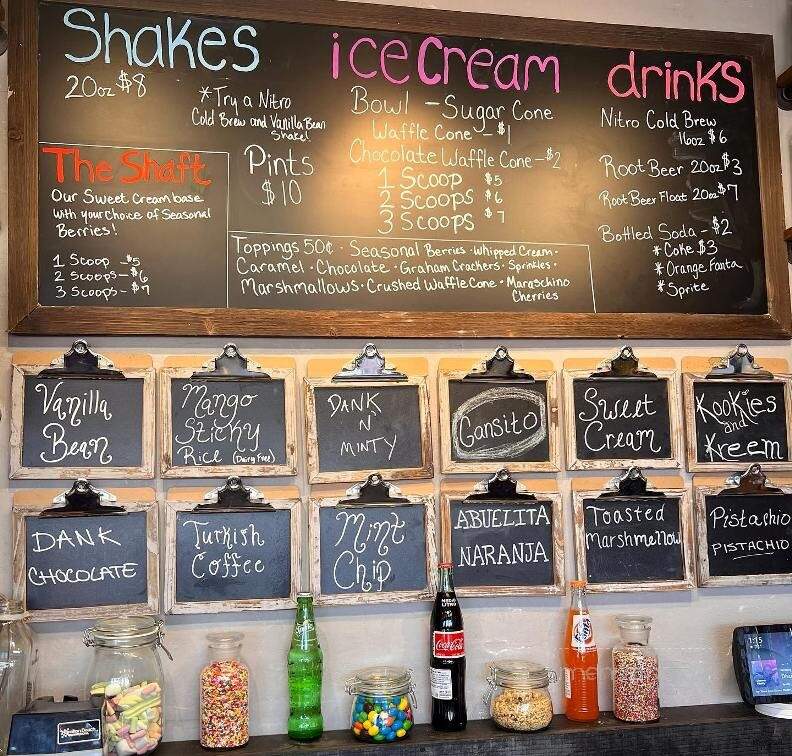 Shakes
20oz $8
*Try a Nitro
Cold Brew and Vanilla Bean
Shake!
The Shaft
Our Sweet Cream base
with your choice of Seasonal
Berries!
1 Scoop - $5
2 Scoops - $6
3 Scoops - $7
Pints
$10
icecream
Bowl - Sugar Cone
Waffle Cone - $1
Chocolate Waffle Cone - $2
1 Scoop $5
2 Scoops $6
3 Scoops $7
Toppings 50¢ · Seasonal Berries · Whipped Cream ·
Caramel · Chocolate · Graham Crackers · Sprinkles ·
Marshmallows · Crushed Waffle Cone · Maraschino
Cherries
drinks
Nitro Cold Brew
16oz $6
Root Beer 20oz $3
Root Beer Float 20oz $7
Bottled Soda - $2
*Coke $3
*Orange Fanta
*Sprite
Vanilla
Bean
Mango
Sticky
Rice (Dairy Free)
DANK
N'
MINTY
Gansito
Sweet
Cream
Kookies
and
Kreem
DANK
CHOCOLATE
Turkish
Coffee
Mint
Chip
ABUELITA
NARANJA
Toasted
Marshmellow
Pistachio
PISTACHIO
Sprite
MEDIO
LITRO
Coca-Cola
Fanta
1:15